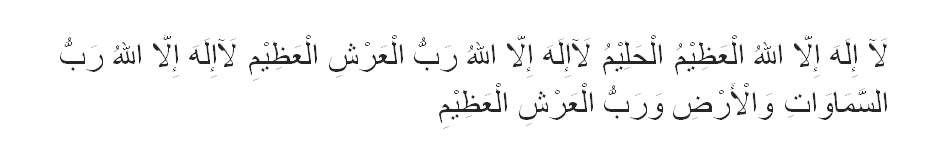 لَآ إِلَهَ إِلَّا اللهُ الْعَظِيْمُ الْحَلِيْمُ لَآإِلَهَ إِلَّا اللهُ رَبُّ الْعَرْشِ الْعَظِيْمِ لَآإِلَهَ إِلَّا اللهُ رَبُّ
السَّمَاوَاتِ وَالْأَرْضِ وَرَبُّ الْعَرْشِ الْعَظِيْمِ